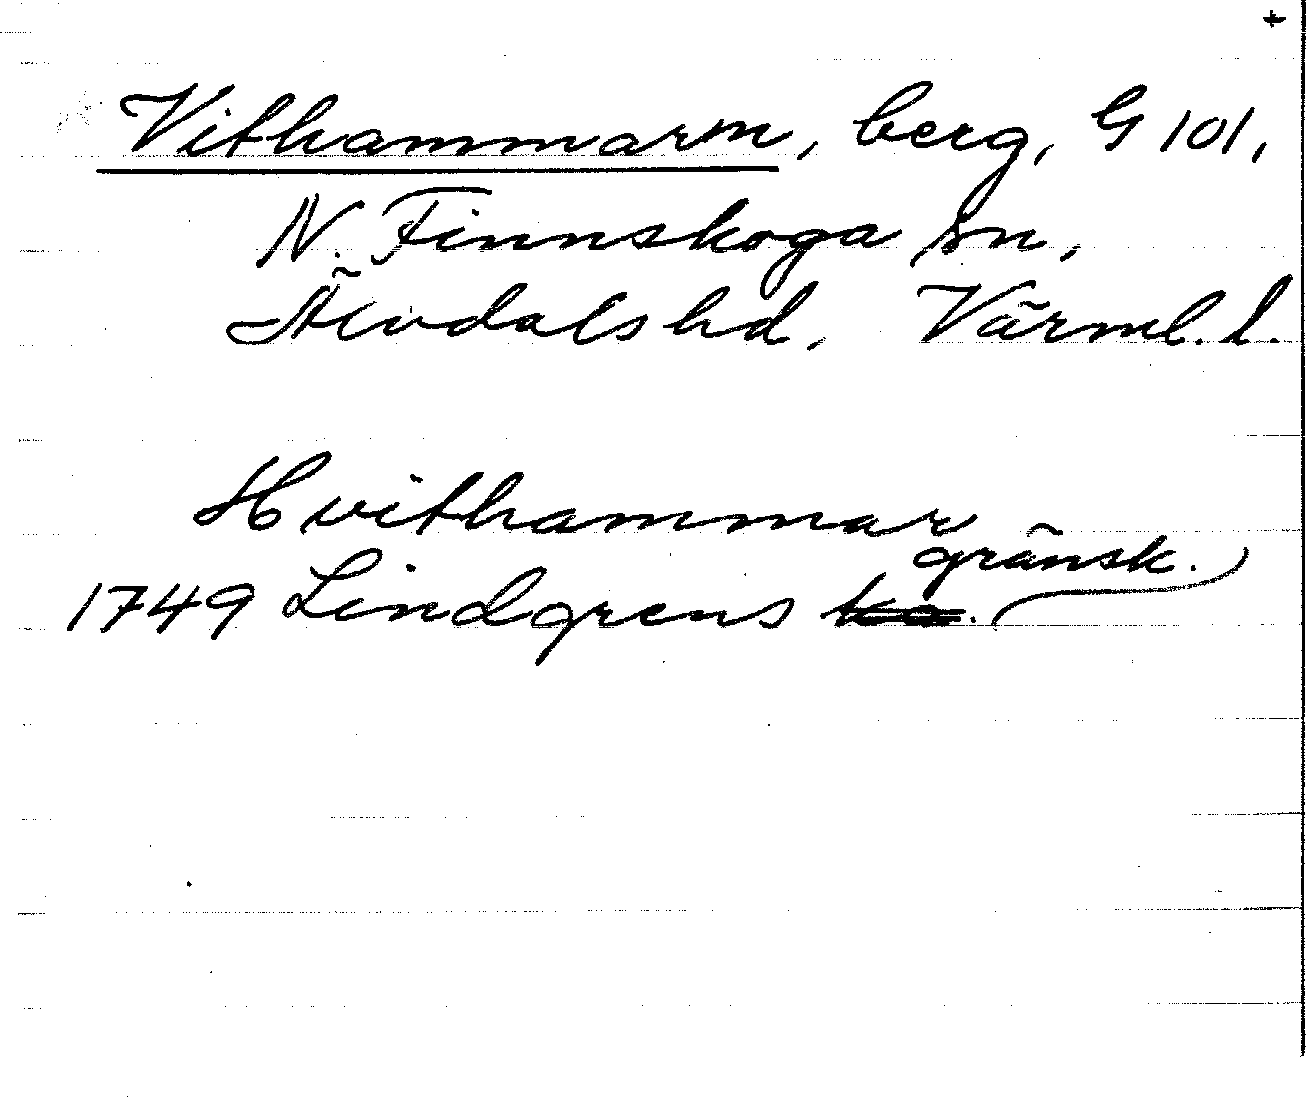 +
Vithammarn, berg, G 101,
N. Finnskoga sn,
Älvdals hd, Värml. l.
Hvithammar
gränsk.
1749 Lindgrens ka.